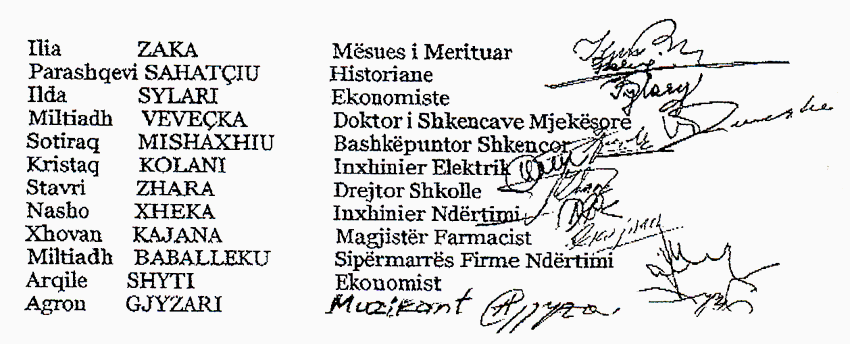 Ilia ZAKA Mësues i Merituar
Parashqevi SAHATÇIU Historiane
Ilda SYLARI Ekonomiste
Miltiadh VEVEÇKA Doktor i Shkencave Mjekësore
Sotiraq MISHAXHIU Bashkëpuntor Shkencor
Kristaq KOLANI Inxhinier Elektrik
Stavri ZHARA Drejtor Shkolle
Nasho XHEKA Inxhinier Ndërtimi
Xhovan KAJANA Magjistër Farmacist
Miltiadh BABALLEKU Sipërmarrës Firme Ndërtimi
Arqile SHYTI Ekonomist
Agron GJYZARI Muzikant